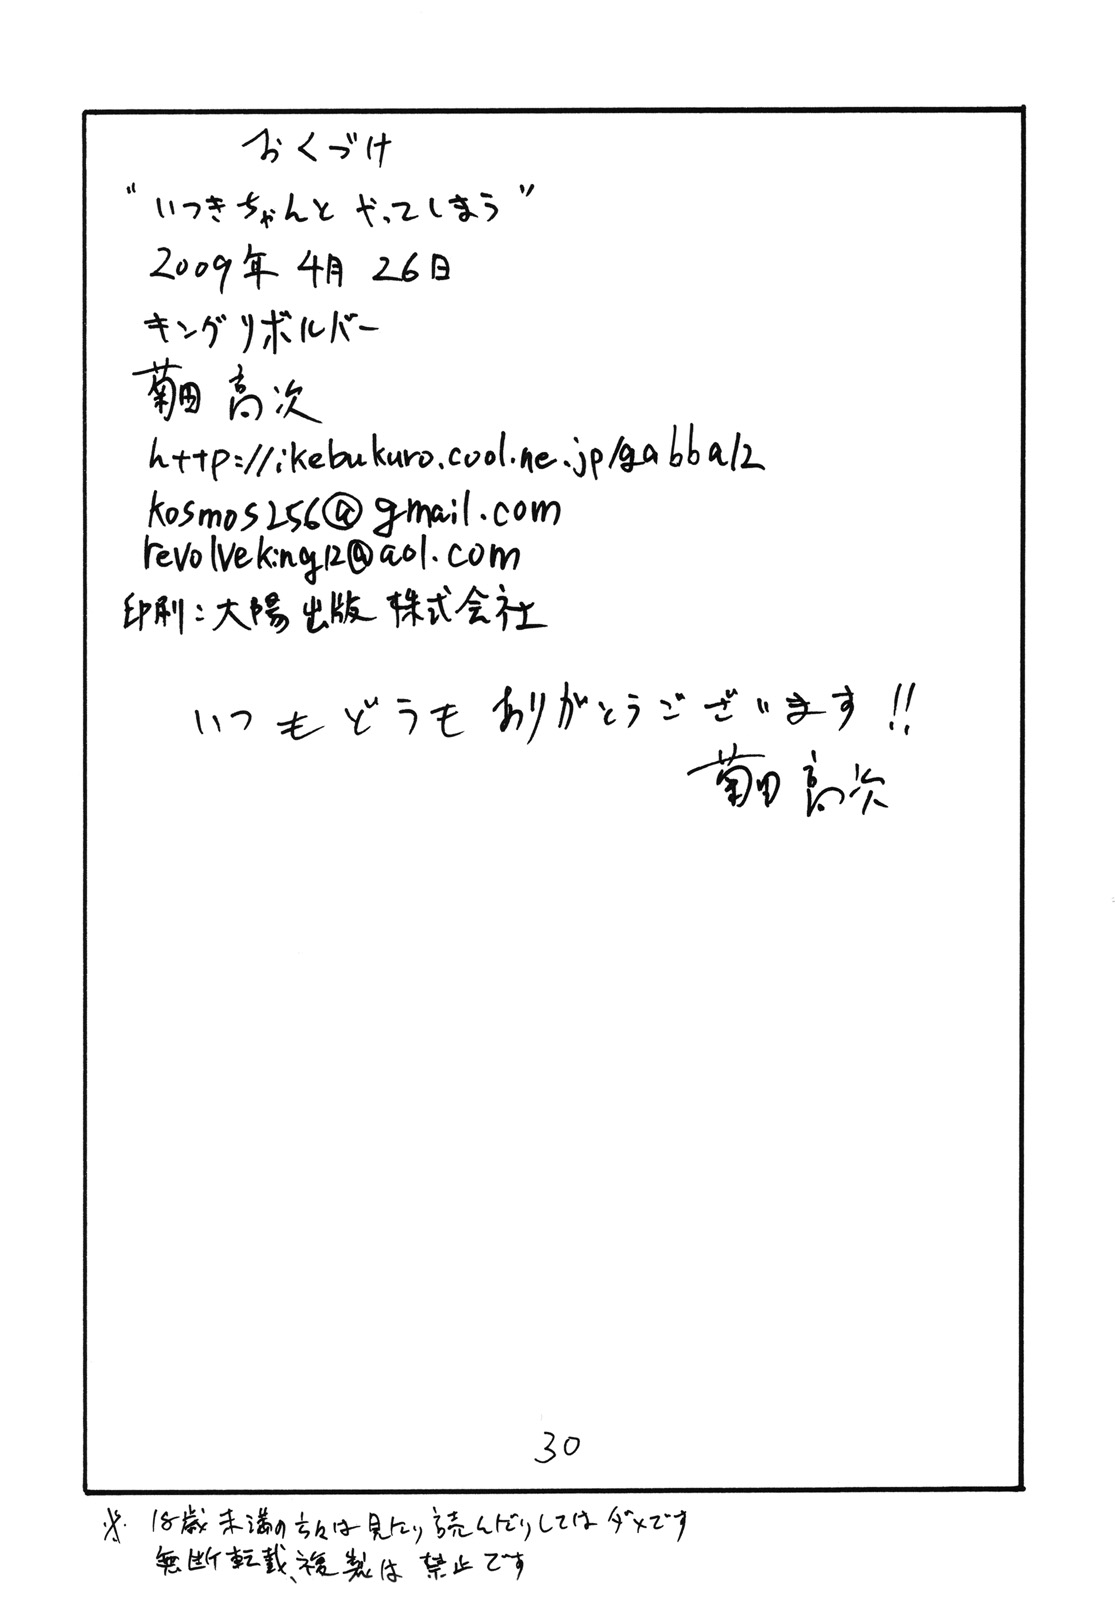 おくづけ
"いつきちゃんと やってしまう"
2009年 4月 26日
キングリボルバー
菊田 高次
http://ikebukuro.cool.ne.jp/gabba12
kosmos256@gmail.com
revolveking12@aol.com
印刷:大陽出版 株式会社
いつもどうも ありがとうございます!!
菊田 高次
30
※ 18歳未満の方々は見たり読んだりしてはダメです
無断転載、複製は 禁止です